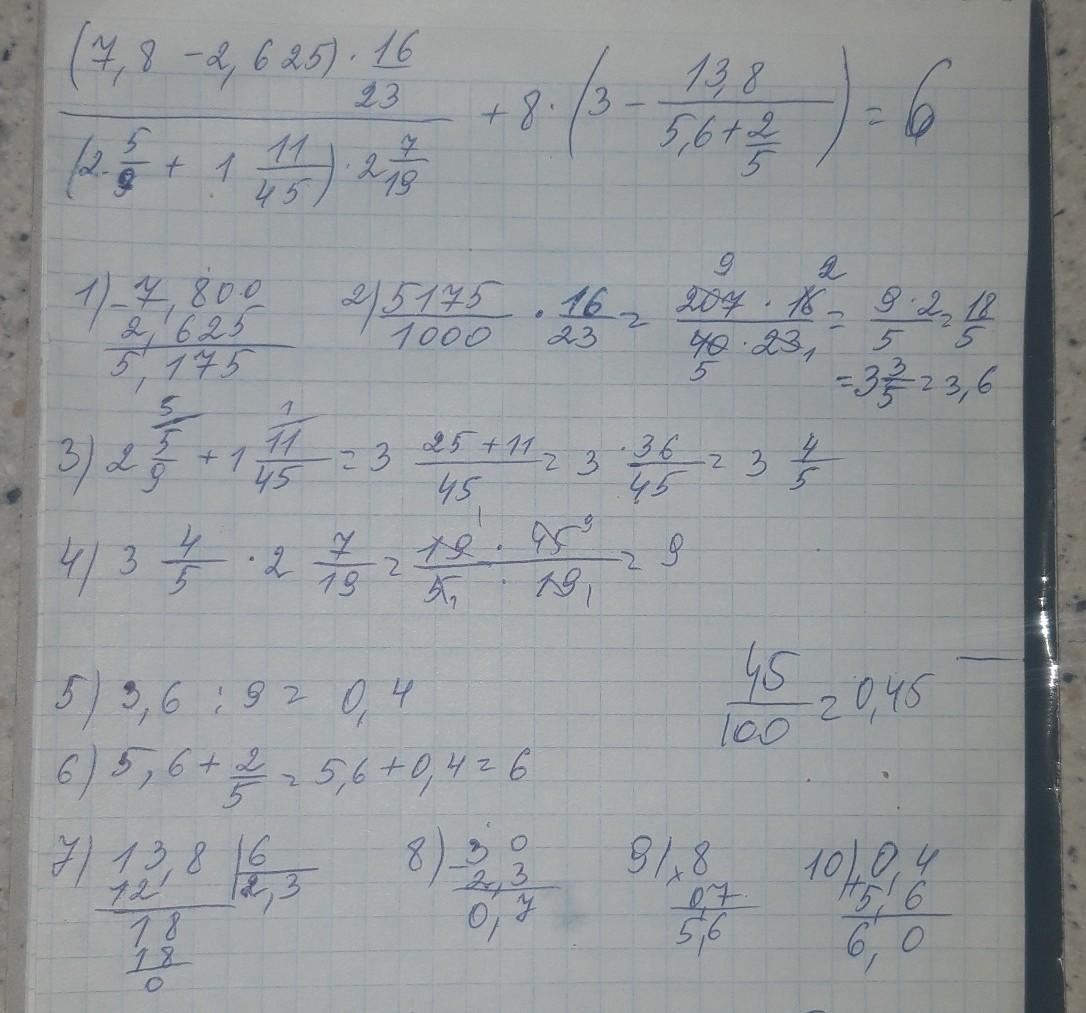 (7,8 - 2,625) · 16/23 / (2 5/9 + 1 11/45) · 2 7/19 + 8 · (3 - 13,8 / (5,6 + 2/5)) = 6
1) - 7,800
2,625
5,175
2) 5175/1000 · 16/23 = 207 · 16 / 40 · 23 = 9 · 2 / 5 = 18/5
9 2
5 1
= 3 3/5 = 3,6
5 1
3) 2 5/9 + 1 11/45 = 3 25 + 11 / 45 = 3 36/45 = 3 4/5
4) 3 4/5 · 2 7/19 = 19 · 45 / 5 · 19 = 9
1 9
1 1
5) 3,6 : 9 = 0,4
45/100 = 0,45
6) 5,6 + 2/5 = 5,6 + 0,4 = 6
7) 13,8 | 6
12 2,3
18
18
0
8) - 3 0
2,3
0,7
9) × 8
0,7
5,6
10) + 0,4
5,6
6,0